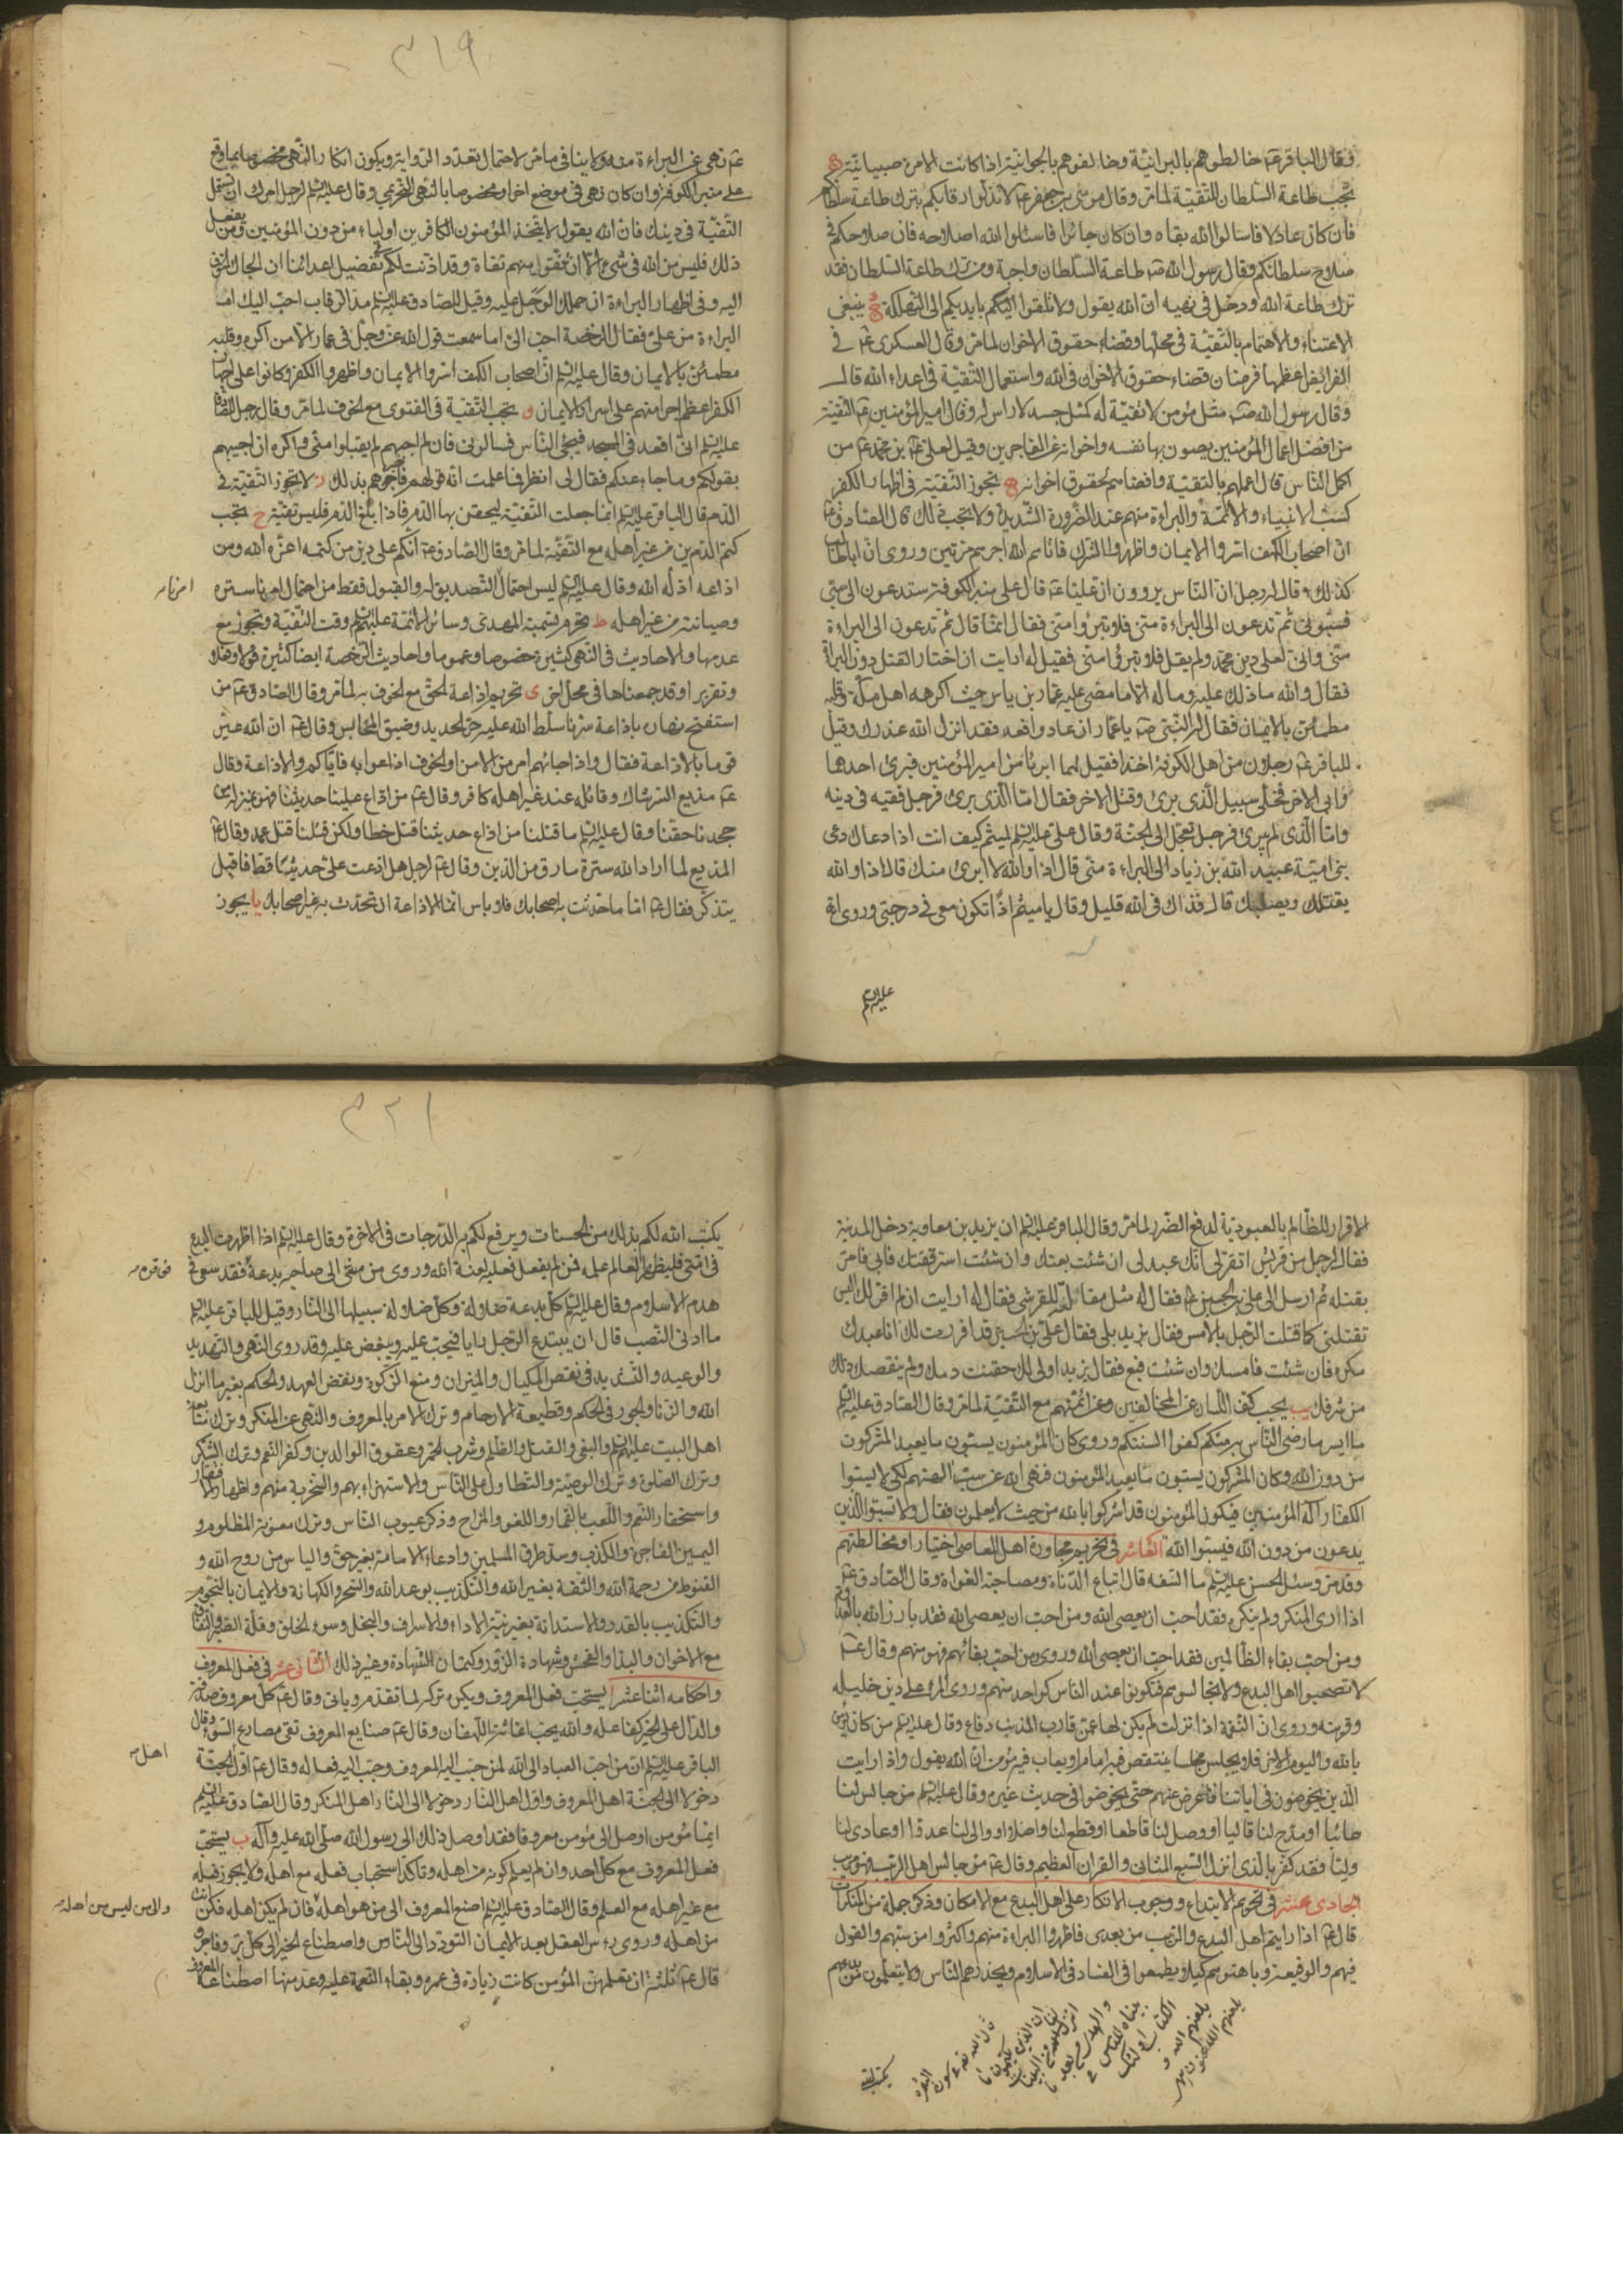 فقال الباقر عم خالطوهم بالبرانيّة وخالفوهم بالجوانيّة اذا كانت الامرة صبيانيّة
تجب طاعة السّلطان للتّقيّة لما مرّ وقال موسى بن جعفر عم لا تذلّوا رقابكم بترك طاعة سلطانكم
فان كان عادلا فاسئلوا الله بقاه وان كان جائرا فاسئلوا الله اصلاحه فان صلاحكم في
صلاح سلطانكم وقال رسول الله صم طاعة السّلطان واجبة ومن ترك طاعة السّلطان فقد
ترك طاعة الله ودخل في نهيه ان الله يقول ولا تلقوا بايديكم الى التّهلكة ينبغي
الاعتناء والاهتمام بالتّقيّة في محلها وقضاء حقوق الاخوان لما مرّ وقال العسكري عم في
الفرائض اعظمها فرضان قضاء حقوق الاخوان في الله واستعمال التّقيّة في اعداء الله قال
وقال رسول الله صم مثل مؤمن لا تقيّة له كمثل جسد لا راس له وقال امير المؤمنين عم التّقيّة
من افضل اعمال المؤمنين يصون بها نفسه واخوانه عن الفاجرين وقيل لعلي بن محمد عم من
اكمل النّاس قال اعملهم بالتّقيّة واقضاهم لحقوق اخوانه تجوز التّقيّة في اظهار الكفر
كسبّ الانبياء والائمّة والبراءة منهم عند الضّرورة الشّديدة ولا يجب ذلك قال الصّادق عم
انّ اصحاب الكهف اسّروا الايمان واظهروا الشّرك فاتاهم الله اجرهم مرّتين وروى انّ اباطالب
كذلك وقال له رجل انّ النّاس يروون انّ عليّا عم قال على منبر الكوفة ستدعون الى سبّي
فسبّوني ثم تدعون الى البراءة منّي فلا تبرّؤا منّي فقال انّما قال ثم تدعون الى البراءة
منّي وانّي لعلى دين محمّد ولم يقل فلا تبرّؤا منّي فقيل له ارايت ان اختار القتل دون البراءة
فقال والله ما ذلك عليه وما له الا ما مضى عليه عمّار بن ياسر حيث اكرهه اهل مكّة وقلبه
مطمئن بالايمان فقال له النّبي صم يا عمّار ان عادوا فعد فقد انزل الله عذرك وقيل
للباقر عم رجلان من اهل الكوفة اخذا فقيل لهما ابرئا من امير المؤمنين فبرئ احدهما
وابى الاخر فخلّى سبيل الّذي برئ وقتل الاخر فقال امّا الّذي برئ فرجل فقيه في دينه
وامّا الّذي لم يبرئ فرجل تعجّل الى الجنّة وقال علي عليه السلم لميثم كيف انت اذا دعاك دعي
بني اميّة عبيد الله بن زياد الى البراءة منّي قال اذا والله لا ابرئ منك قال اذا والله
يقتلك ويصلبك قال فذاك في الله قليل وقال يا ميثم اذا تكون معي في درجتي وروى انّه
عليه السلم
٣١٩
عم نهى عن البراءة منه ولا ينافي ما مرّ لاحتمال تعدّد الرّواية ويكون انكار النّهي مخصوصا بما وقع
على منبر الكوفة وان كان نهى في موضع اخر او مخصوصا بالنّهي التّحريمي وقال عليه السلم لرجل امرك ان تستعمل
التّقيّة في دينك فانّ الله يقول لا يتّخذ المؤمنون الكافرين اولياء من دون المؤمنين ومن يفعل
ذلك فليس من الله في شيء الّا ان تتّقوا منهم تقاة وقد اذنت لكم تفضيل اعدائنا ان الجاك الخوف
اليه وفي اظهار البراءة ان حملك الوجل عليه وقيل للصّادق عليه السلم مدّ الرّقاب احبّ اليك ام
البراءة من علي فقال الرّخصة احبّ اليّ اما سمعت قول الله عزّ وجلّ في عمّار الّا من اكره وقلبه
مطمئن بالايمان وقال عليه السلم انّ اصحاب الكهف اسّروا الايمان واظهروا الكفر وكانوا على اجهار
الكفر اعظم اجرا منهم على اسرار الايمان و تجب التّقيّة في الفتوى مع الخوف لما مرّ وقال رجل للصّادق
عليه السلم انّي اقعد في المسجد فيجئ النّاس فسالوني فان لم اجبهم لم يقبلوا منّي واكره ان اجيبهم
بقولكم وما جاء عنكم فقال لي انظر ما علمت انّه قولهم فاخبرهم بذلك ز لا تجوز التّقيّة في
الدّم قال الباقر عليه السلم انّما جعلت التّقيّة ليحقن بها الدّم فاذا بلغ الدّم فليس تقيّة ح يجب
كتم الدّين عن غير اهله مع التّقيّة لما مرّ وقال الصّادق عم انّكم على دين من كتمه اعزّه الله ومن
اذاعه اذلّه الله وقال عليه السلم ليس احتمال التّصديق له والقبول فقط من احتمال امرنا ستره
امرنا
وصيانته من غير اهله ط تحرم تسمية المهدي وسائر الائمّة عليهم السلم وقت التّقيّة وتجوز مع
عدمها والاحاديث في النّهي كثيرة خصوصا وعموما واحاديث الرّخصة ايضا كثيرة قولا وفعلا
وتقريرا وقد جمعناها في محل اخر ى تحريم اذاعة الحقّ مع الخوف به لما مرّ وقال الصّادق عم من
استفتح نهاره باذاعة سرّنا سلّط الله عليه حرّ الحديد وضيق المحابس وقال عم انّ الله عيّر
قوما بالاذاعة فقال واذا جائهم امر من الامن او الخوف اذاعوا به فايّاكم والاذاعة وقال
عم مذيع السّرّ شاك وقائله عند غير اهله كافر وقال عم من اذاع علينا حديثنا فهو بمنزلة من
جحدنا حقّنا وقال عليه السلم ما قتلنا من اذاع حديثنا قتل خطا ولكن قتلنا قتل عمد وقال عم
المذيع لما اراد الله ستره مارق من الدّين وقال عم لرجل هل اذعت على حديثا قط فاقبل
يتذكّر فقال عم امّا ما حدّثت به اصحابك فلا باس انّما الاذاعة ان تحدّث به غير اصحابك يا يجوز
الاقرار للظّالم بالعبوديّة لدفع الضّرر لما مرّ وقال الباقر عليه السلم ان يزيد بن معاوية دخل المدينة
فقال لرجل من قريش اتقرّ لي انّك عبد لي ان شئت بعتك وان شئت استرققتك فابى فامر
بقتله ثم ارسل الى علي بن الحسين عم فقال له مثل مقالته للقرشي فقال له ارايت ان لم اقرّ لك اليس
تقتلني كما قتلت الرّجل بالامس فقال يزيد بلى فقال علي بن الحسين قد اقررت لك انا عبد لك
مكره فان شئت فامسك وان شئت فبع فقال يزيد اولى لك حقنت دمك ولم ينقصك ذلك
من شرفك يب يجب كفّ اللّسان عن المخالفين وعن ائمّتهم مع التّقيّة لما مرّ وقال الصّادق عليه السلم
ما ايسر ما رضي النّاس به منكم كفّوا السنتكم وروى كان المؤمنون يسبّون ما يعبد المشركون
من دون الله وكان المشركون يسبّون ما يعبد المؤمنون فنهى الله عن سبّ الهتهم لكي لا يسبّوا
الكفّار اله المؤمنين فيكون المؤمنون قد اشركوا بالله من حيث لا يعلمون فقال ولا تسبّوا الّذين
يدعون من دون الله فيسبّوا الله العاشر في تحريم مجاورة اهل المعاصي اختيارا ومخالطتهم
وقد مرّ وسئل الحسن عليه السلم ما السّفه قال اتباع الدّناة ومصاحبة الغواة وقال الصّادق عم
اذا راى المنكر ولم ينكره فقد احبّ ان يعصى الله ومن احبّ ان يعصى الله فقد بارز الله بالعداوة
ومن احبّ بقاء الظّالمين فقد احبّ ان يعصى الله وروى من احبّ بقائهم فهو منهم وقال عم
لا تصحبوا اهل البدع ولا تجالسوهم فتكونوا عند النّاس كواحد منهم وروى المرء على دين خليله
وقرينه وروى انّ النّقمة اذا نزلت لم يكن لها عمّن قارب المذنب دفاع وقال عليه السلم من كان يؤمن
بالله واليوم الاخر فلا يجلس مجلسا ينتقص فيه امام او يعاب فيه مؤمن انّ الله يقول واذا رايت
الّذين يخوضون في اياتنا فاعرض عنهم حتّى يخوضوا في حديث غيره وقال عليه السلم من جالس لنا
عائبا او مدح لنا قاليا او وصل لنا قاطعا او قطع لنا واصلا او والى لنا عدوّا او عادى لنا
وليّا فقد كفر بالّذي انزل السّبع المثاني والقران العظيم وقال عم من جالس اهل الرّيب فهو مريب
الحادى عشر في تحريم الابتداع ووجوب الانكار على اهل البدع مع الامكان وذكر جملة من المنكرات
قال عم اذا رايتم اهل البدع والرّيب من بعدي فاظهروا البراءة منهم واكثروا من سبّهم والقول
فيهم والوقيعة وباهتوهم كيلا يطمعوا في الفساد في الاسلام ويحذرهم النّاس ولا يتعلّمون من بدعهم
قال الله تعالى في سورة البقرة
ان الذين يكتمون ما
انزلنا من البينات
والهدى من بعد ما
بيناه للناس في
الكتاب اولئك
يلعنهم الله و
يلعنهم اللاعنون
يكتب الله
٣٢١
يكتب الله لكم بذلك من الحسنات ويرفع لكم به الدّرجات في الاخرة وقال عليه السلم اذا ظهرت البدع
في امّتي فليظهر العالم علمه فمن لم يفعل فعليه لعنة الله وروى من مشى الى صاحب بدعة فقد سعى في
هدم الاسلام وقال عليه السلم كل بدعة ضلالة وكل ضلالة سبيلها الى النّار وقيل للباقر عليه السلم
ما ادنى النّصب قال ان يبتدع الرّجل رايا فيحبّ عليه ويبغض عليه وقد روى النّهي والتّهديد
والوعيد والتّشديد في نقص المكيال والميزان ومنع الزّكوة ونقض العهد والحكم بغير ما انزل
الله والزّنا والجور في الحكم وقطيعة الارحام وترك الامر بالمعروف والنّهي عن المنكر وترك متابعة
اهل البيت عليهم السلم والبغي والقتل والظلم وشرب الخمر وعقوق الوالدين وكفر النّعم وترك الشّكر
وترك الصّلوة وترك الوصيّة والتّطاول على النّاس والاستهزاء بهم والسّخرية منهم واظهار الافتقار
واستحقار النّعم واللّعب بالقمار واللغو والمزاح وذكر عيوب النّاس وترك معونة المظلوم و
اليمين الفاجرة والكذب وسدّ طرق المسلمين وادعاء الامامة بغير حق والياس من روح الله و
القنوط من رحمة الله والثّقة بغير الله والتّكذيب بوعد الله والسّحر والكهانة والايمان بالنّجوم
والتّكذيب بالقدر والاستدانة بغير نيّة الاداء والاسراف والبخل وسوء الخلق وقلّة الصّبر
مع الاخوان والبذاء والفحش وشهادة الزّور وكتمان الشّهادة وغير ذلك الثّاني عشر في فعل المعروف
واحكامه اثنا عشر ا يستحبّ فعل المعروف ويكره تركه لما تقدّم وياتي وقال عم كل معروف صدقة
والدّال على الخير كفاعله والله يحبّ اغاثة اللّهفان وقال عم صنايع المعروف تقي مصارع السّوء وقال
الباقر عليه السلم ان من احبّ العباد الى الله لمن حبّب اليه المعروف وحبّب اليه فعاله وقال عم اوّل الجنّة
اهل
دخولا الى الجنّة اهل المعروف واوّل اهل النّار دخولا الى النّار اهل المنكر وقال الصّادق عليه السلم
ايّما مؤمن اوصل الى مؤمن معروفا فقد اوصل ذلك الى رسول الله صلّى الله عليه واله ب يستحبّ
فعل المعروف مع كل احد وان لم يعلم كونه من اهله وتاكّد استحباب فعله مع اهله ولا يجوز فعله
مع غير اهله مع العلم وقال الصّادق عليه السلم اصنع المعروف الى من هو اهله فان لم يكن اهله فكن انت
والى من ليس من اهله
من اهله وروى راس العقل بعد الايمان التودّد الى النّاس واصطناع الخير الى كل برّ وفاجر و
قال عم ثلثة ان تعلمهنّ المؤمن كانت زيادة في عمره وبقاء النّعمة عليه وعدّ منها اصطناعه المعروف